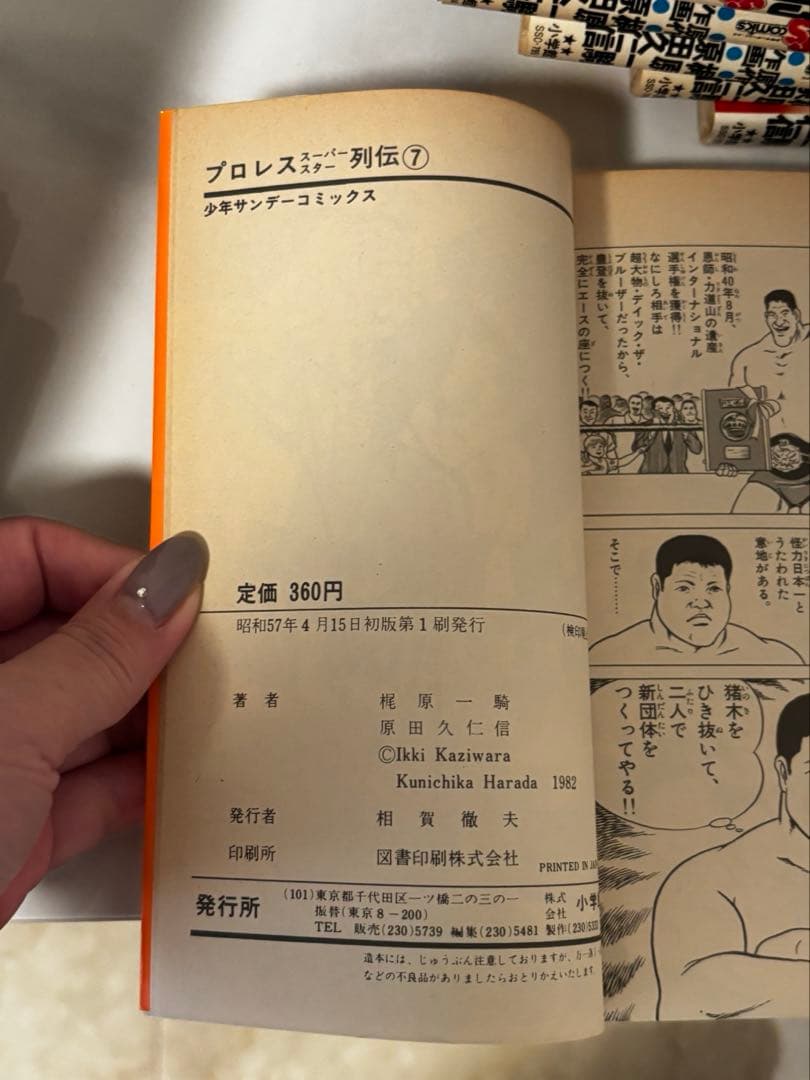 プロレススーパースター列伝⑦
少年サンデーコミックス
定価 360円
昭和57年4月15日初版第1刷発行
(検印
著者 梶原一騎
原田久仁信
©Ikki Kaziwara
Kunichika Harada 1982
発行者 相賀徹夫
印刷所 図書印刷株式会社
PRINTED IN JA
発行所
(101)東京都千代田区一ツ橋二の三の一
振替(東京8-200)
TEL 販売(230)5739 編集(230)5481 製作(230)533
株式会社 小学
造本には、じゅうぶん注意しておりますが、万一
などの不良品がありましたらおとりかえいたします
昭和40年8月、
恩師・力道山の遺産
インターナショナル
選手権を獲得!!
なにしろ相手は
超大物・ディック・ザ・
ブルーザーだったから、
豊登を抜いて、
完全にエースの座につく!!
怪力日本一と
うたわれた
意地がある。
そこで………
猪木を
ひき抜いて、
二人で
新団体を
つくってやる!!
comics
作画・原田久仁信
小学館